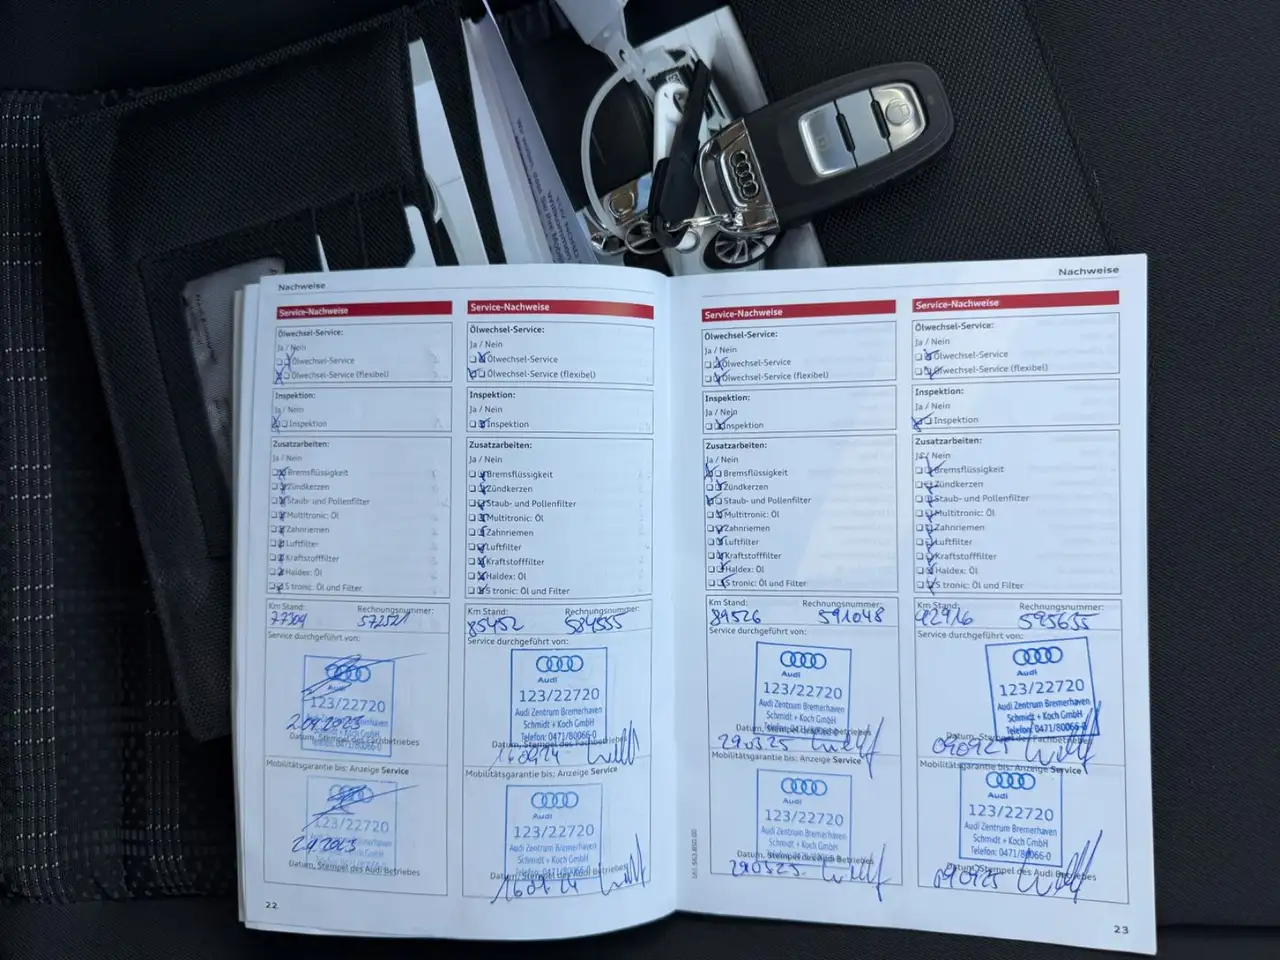 Nachweise
Service-Nachweise
Ölwechsel-Service:
Ja / Nein
Ölwechsel-Service
Ölwechsel-Service (flexibel)
Inspektion:
Ja / Nein
Inspektion
Zusatzarbeiten:
Ja / Nein
Bremsflüssigkeit
Zündkerzen
Staub- und Pollenfilter
Multitronic: Öl
Zahnriemen
Luftfilter
Kraftstofffilter
Haldex: Öl
S tronic: Öl und Filter
Km Stand: Rechnungsnummer:
77309 572521
Service durchgeführt von:
Audi
123/22720
Audi Zentrum Bremerhaven
Schmidt + Koch GmbH
Telefon: 0471/80066-0
Datum, Stempel des Fachbetriebes
Mobilitätsgarantie bis: Anzeige Service
Audi
123/22720
Audi Zentrum Bremerhaven
Schmidt + Koch GmbH
Datum, Stempel des Audi Betriebes
22
Service-Nachweise
Ölwechsel-Service:
Ja / Nein
Ölwechsel-Service
Ölwechsel-Service (flexibel)
Inspektion:
Ja / Nein
Inspektion
Zusatzarbeiten:
Ja / Nein
Bremsflüssigkeit
Zündkerzen
Staub- und Pollenfilter
Multitronic: Öl
Zahnriemen
Luftfilter
Kraftstofffilter
Haldex: Öl
S tronic: Öl und Filter
Km Stand: Rechnungsnummer:
85452 584555
Service durchgeführt von:
Audi
123/22720
Audi Zentrum Bremerhaven
Schmidt + Koch GmbH
Telefon: 0471/80066-0
Datum, Stempel des Fachbetriebes
160924
Mobilitätsgarantie bis: Anzeige Service
Audi
123/22720
Audi Zentrum Bremerhaven
Schmidt + Koch GmbH
Telefon: 0471/80066-0
Datum, Stempel des Audi Betriebes
Nachweise
Service-Nachweise
Ölwechsel-Service:
Ja / Nein
Ölwechsel-Service
Ölwechsel-Service (flexibel)
Inspektion:
Ja / Nein
Inspektion
Zusatzarbeiten:
Ja / Nein
Bremsflüssigkeit
Zündkerzen
Staub- und Pollenfilter
Multitronic: Öl
Zahnriemen
Luftfilter
Kraftstofffilter
Haldex: Öl
S tronic: Öl und Filter
Km Stand: Rechnungsnummer:
89526 591048
Service durchgeführt von:
Audi
123/22720
Audi Zentrum Bremerhaven
Schmidt + Koch GmbH
Telefon: 0471/80066-0
Datum, Stempel des Fachbetriebes
290325
Mobilitätsgarantie bis: Anzeige Service
Audi
123/22720
Audi Zentrum Bremerhaven
Schmidt + Koch GmbH
Datum, Stempel des Audi Betriebes
290325
Service-Nachweise
Ölwechsel-Service:
Ja / Nein
Ölwechsel-Service
Ölwechsel-Service (flexibel)
Inspektion:
Ja / Nein
Inspektion
Zusatzarbeiten:
Ja / Nein
Bremsflüssigkeit
Zündkerzen
Staub- und Pollenfilter
Multitronic: Öl
Zahnriemen
Luftfilter
Kraftstofffilter
Haldex: Öl
S tronic: Öl und Filter
Km Stand: Rechnungsnummer:
92916 595655
Service durchgeführt von:
Audi
123/22720
Audi Zentrum Bremerhaven
Schmidt + Koch GmbH
Telefon: 0471/80066-0
Datum, Stempel des Fachbetriebes
090925
Mobilitätsgarantie bis: Anzeige Service
Audi
123/22720
Audi Zentrum Bremerhaven
Schmidt + Koch GmbH
Telefon: 0471/80066-0
Datum, Stempel des Audi Betriebes
090925
23